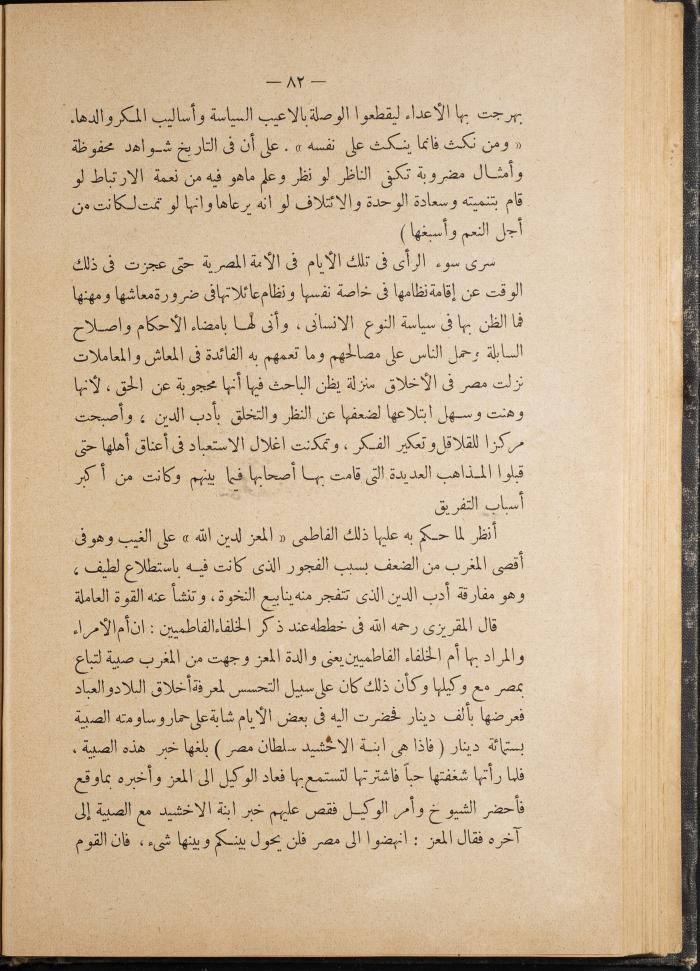 — ٨٢ —
بهرجت بها الأعداء ليقطعوا الوصلة بالاعيب السياسة وأساليب المكر والدها.
« ومن نكث فانما ينكث على نفسه » . على أن فى التاريخ شواهد محفوظة
وأمثال مضروبة تكفى الناظر لو نظر وعلم ماهو فيه من نعمة الارتباط لو
قام بتنميته وسعادة الوحدة والائتلاف لو انه يرعاها وانها لو تمت لكانت من
أجل النعم وأسبغها )
سرى سوء الرأى فى تلك الأيام فى الأمة المصرية حتى عجزت فى ذلك
الوقت عن إقامة نظامها فى خاصة نفسها ونظام عائلاتها فى ضرورة معاشها ومهنها
فما الظن بها فى سياسة النوع الانسانى ، وأنى لها بامضاء الأحكام واصلاح
السابلة وحمل الناس على مصالحهم وما تعمهم به الفائدة فى المعاش والمعاملات
نزلت مصر فى الأخلاق منزلة يظن الباحث فيها أنها محجوبة عن الحق ، لأنها
وهنت وسهل ابتلاعها لضعفها عن النظر والتخلق بأدب الدين ، وأصبحت
مركزا للقلاقل وتعكير الفكر ، وتمكنت اغلال الاستعباد فى أعناق أهلها حتى
قبلوا المذاهب العديدة التى قامت بها أصحابها فيما بينهم وكانت من أكبر
أسباب التفريق
أنظر لما حكم به عليها ذلك الفاطمى « المعز لدين الله » على الغيب وهو فى
أقصى المغرب من الضعف بسبب الفجور الذى كانت فيه باستطلاع لطيف ،
وهو مفارقة أدب الدين الذى تتفجر منه ينابيع النخوة ، وتنشأ عنه القوة العاملة
قال المقريزى رحمه الله فى خططه عند ذكر الخلفاء الفاطميين : ان أم الأمراء
والمراد بها أم الخلفاء الفاطميين يعنى والدة المعز وجهت من المغرب صبية لتباع
بمصر مع وكيلها وكأن ذلك كان على سبيل التحسس لمعرفة أخلاق البلاد والعباد
فعرضها بألف دينار فحضرت اليه فى بعض الأيام شابة على حمار وساومته الصبية
بستمائة دينار ( فاذا هى ابنة الاخشيد سلطان مصر ) بلغها خبر هذه الصبية ،
فلما رأتها شغفتها حباً فاشترتها لتستمع بها فعاد الوكيل الى المعز وأخبره بما وقع
فأحضر الشيوخ وأمر الوكيل فقص عليهم خبر ابنة الاخشيد مع الصبية إلى
آخره فقال المعز : انهضوا الى مصر فلن يحول بينكم وبينها شىء ، فان القوم